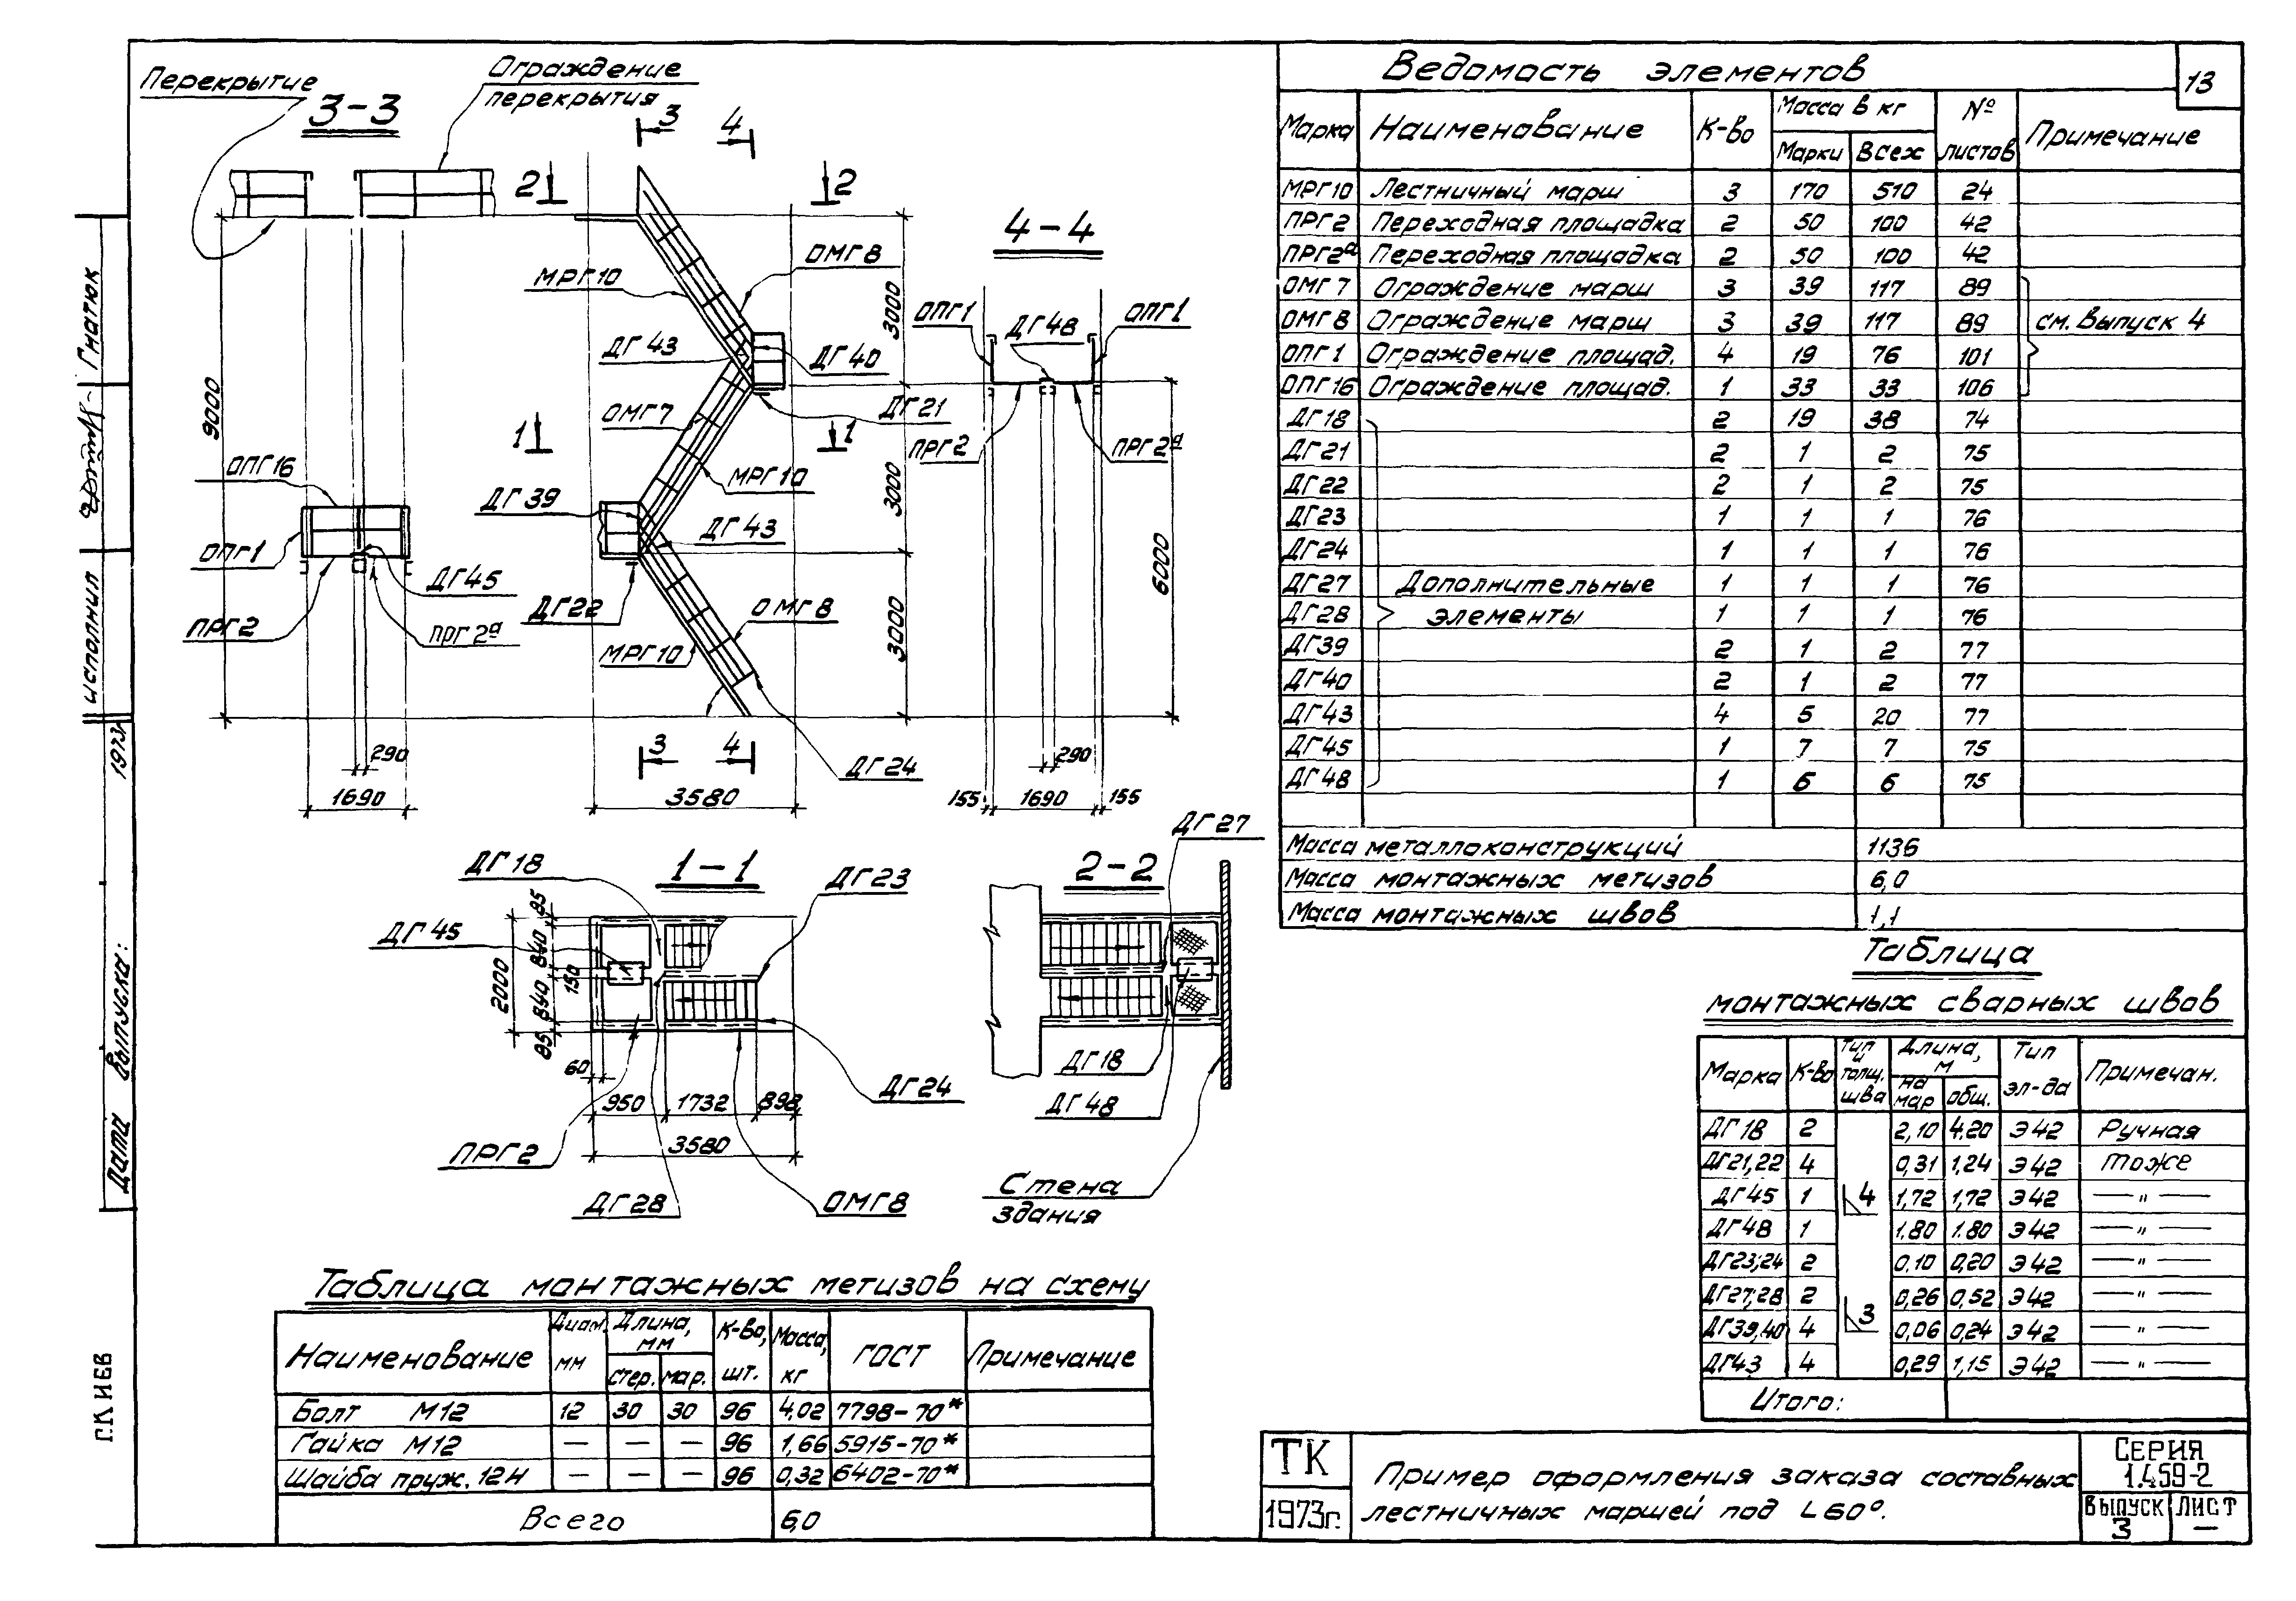 Перекрытие
Ограждение
перекрытия
3-3
3
4
2
2
МРГ10
ОМГ8
ДГ43
ДГ40
3000
ОМГ7
ДГ21
9000
1
1
ОПГ16
МРГ10
3000
ДГ39
ДГ43
ОПГ1
ДГ45
ДГ22
ОМГ8
ПРГ2
ПРГ2а
МРГ10
3000
3
4
290
1690
3580
ДГ24
4-4
ОПГ1
ДГ48
ОПГ1
ПРГ2
ПРГ2а
6000
290
155
1690
155
1-1
ДГ18
ДГ23
ДГ45
85
840
150
840
85
2000
60
950
1732
898
3580
ДГ24
ПРГ2
ДГ28
ОМГ8
2-2
ДГ27
ДГ18
ДГ48
Стена
здания
Ведомасть элементов
13
Марка Наименование К-во Масса в кг № листов Примечание
Марки Всех
МРГ10 Лестничный марш 3 170 510 24
ПРГ2 Переходная площадка 2 50 100 42
ПРГ2а Переходная площадка 2 50 100 42
ОМГ7 Ограждение марш 3 39 117 89
ОМГ8 Ограждение марш 3 39 117 89 см. Выпуск 4
ОПГ1 Ограждение площад. 4 19 76 101
ОПГ16 Ограждение площад. 1 33 33 106
ДГ18 2 19 38 74
ДГ21 2 1 2 75
ДГ22 2 1 2 75
ДГ23 1 1 1 76
ДГ24 1 1 1 76
ДГ27 Дополнительные 1 1 1 76
ДГ28 элементы 1 1 1 76
ДГ39 2 1 2 77
ДГ40 2 1 2 77
ДГ43 4 5 20 77
ДГ45 1 7 7 75
ДГ48 1 6 6 75
Масса металлоконструкций 1136
Масса монтажных метизов 6,0
Масса монтажных швов 1,1
Таблица
монтажных сварных швов
Марка К-во Тип и толщ. шва Длина, м Тип эл-да Примечан.
на мар общ.
ДГ18 2 2,10 4.20 Э42 Ручная
ДГ21,22 4 0,31 1,24 Э42 тоже
ДГ45 1 4 1,72 1,72 Э42 — " —
ДГ48 1 1.80 1.80 Э42 — " —
ДГ23;24 2 0.10 0,20 Э42 — " —
ДГ27,28 2 0,26 0,52 Э42 — " —
ДГ39,40 4 3 0,06 0,24 Э42 — " —
ДГ43 4 0,29 1,15 Э42 — " —
Итого:
Таблица монтажных метизов на схему
Наименование Диам. мм Длина, мм К-во, шт. Масса, кг ГОСТ Примечание
стер. мар.
Болт М12 12 30 30 96 4,02 7798-70*
Гайка М12 — — — 96 1,66 5915-70*
Шайба пруж. 12Н — — — 96 0,32 6402-70*
Всего 6,0
ТК
1973г.
Пример оформления заказа составных
лестничных маршей под ∟60°.
Серия
1.459-2
Выпуск
3
Лист
—
Гнатюк
исполнил
1973г
Дата выпуска:
г.Киев